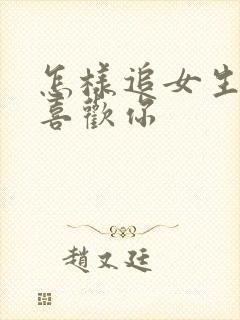 怎樣追女生
喜歡你
趙文廷